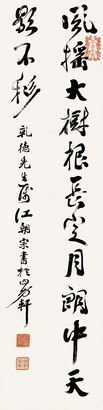 風搖大樹根長定月朗中天
影不移
乾德先生屬江朝宗書於軒